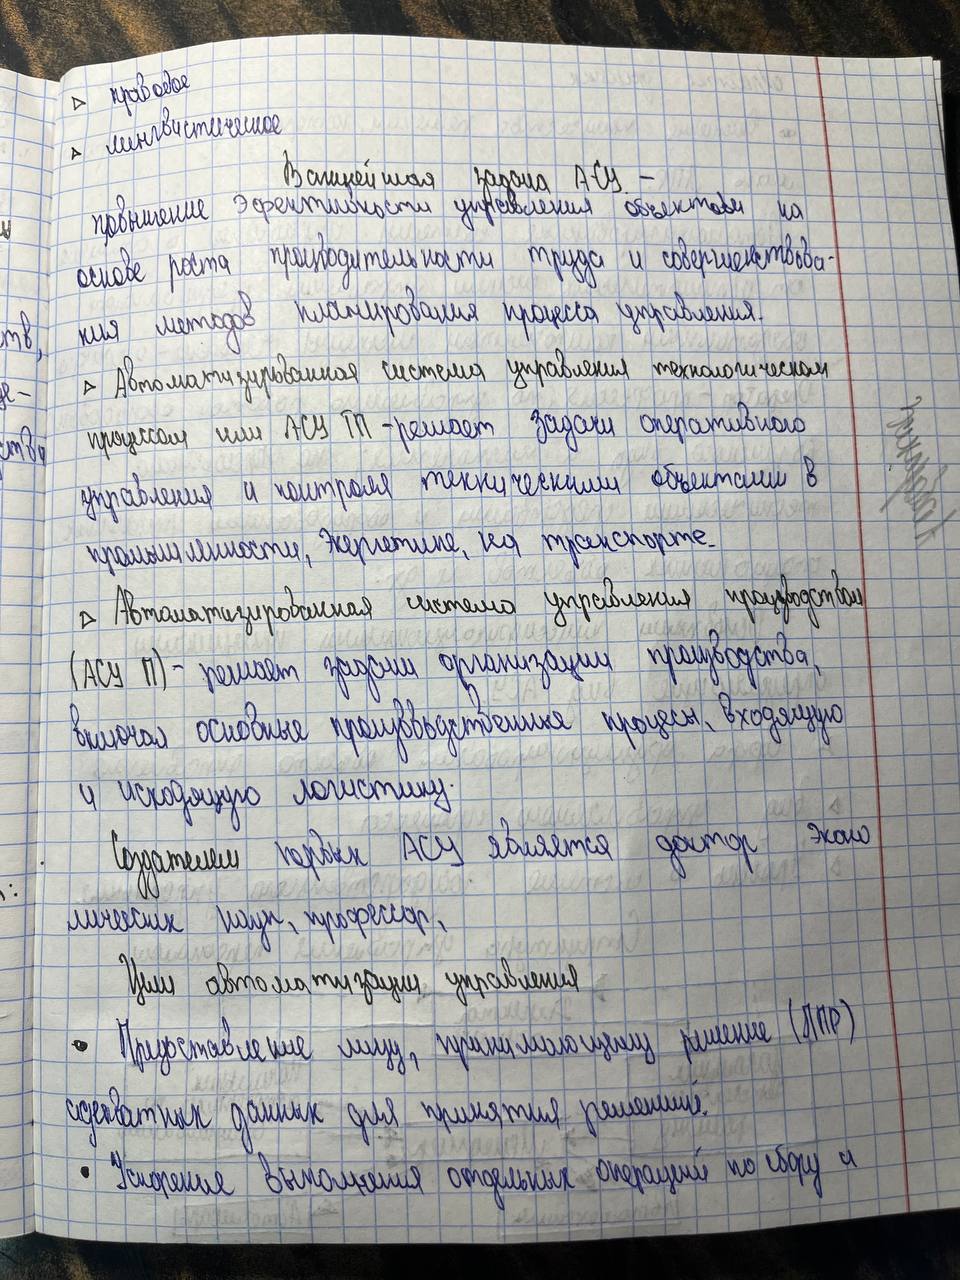 ▷ правовое
▷ лингвистическое
Важнейшая задача АСУ –
повышение эфективности управления объектом на
основе роста производительности труда и совершенствова-
ния методов планирования процесса управления.
▷ Автоматизированная система управления технологическом
процессом или АСУ ТП - решает задачи оперативного
управления и контроля техническими объектами в
промышленности, энергетике, на транспорте.
▷ Автоматизированная система управления производством
(АСУ П) - решает задачи организации производства,
включая основные производственные процесы, входящую
и исходящую логистику.
Создателем первых АСУ является доктор эконо
мических наук, профессор,
Цели автоматизации управления
• Предоставление лицу, принимающему решение (ЛПР)
адекватных данных для принятия решений.
• Ускорение выполнения отдельных операций по сбору и
ств,
ства